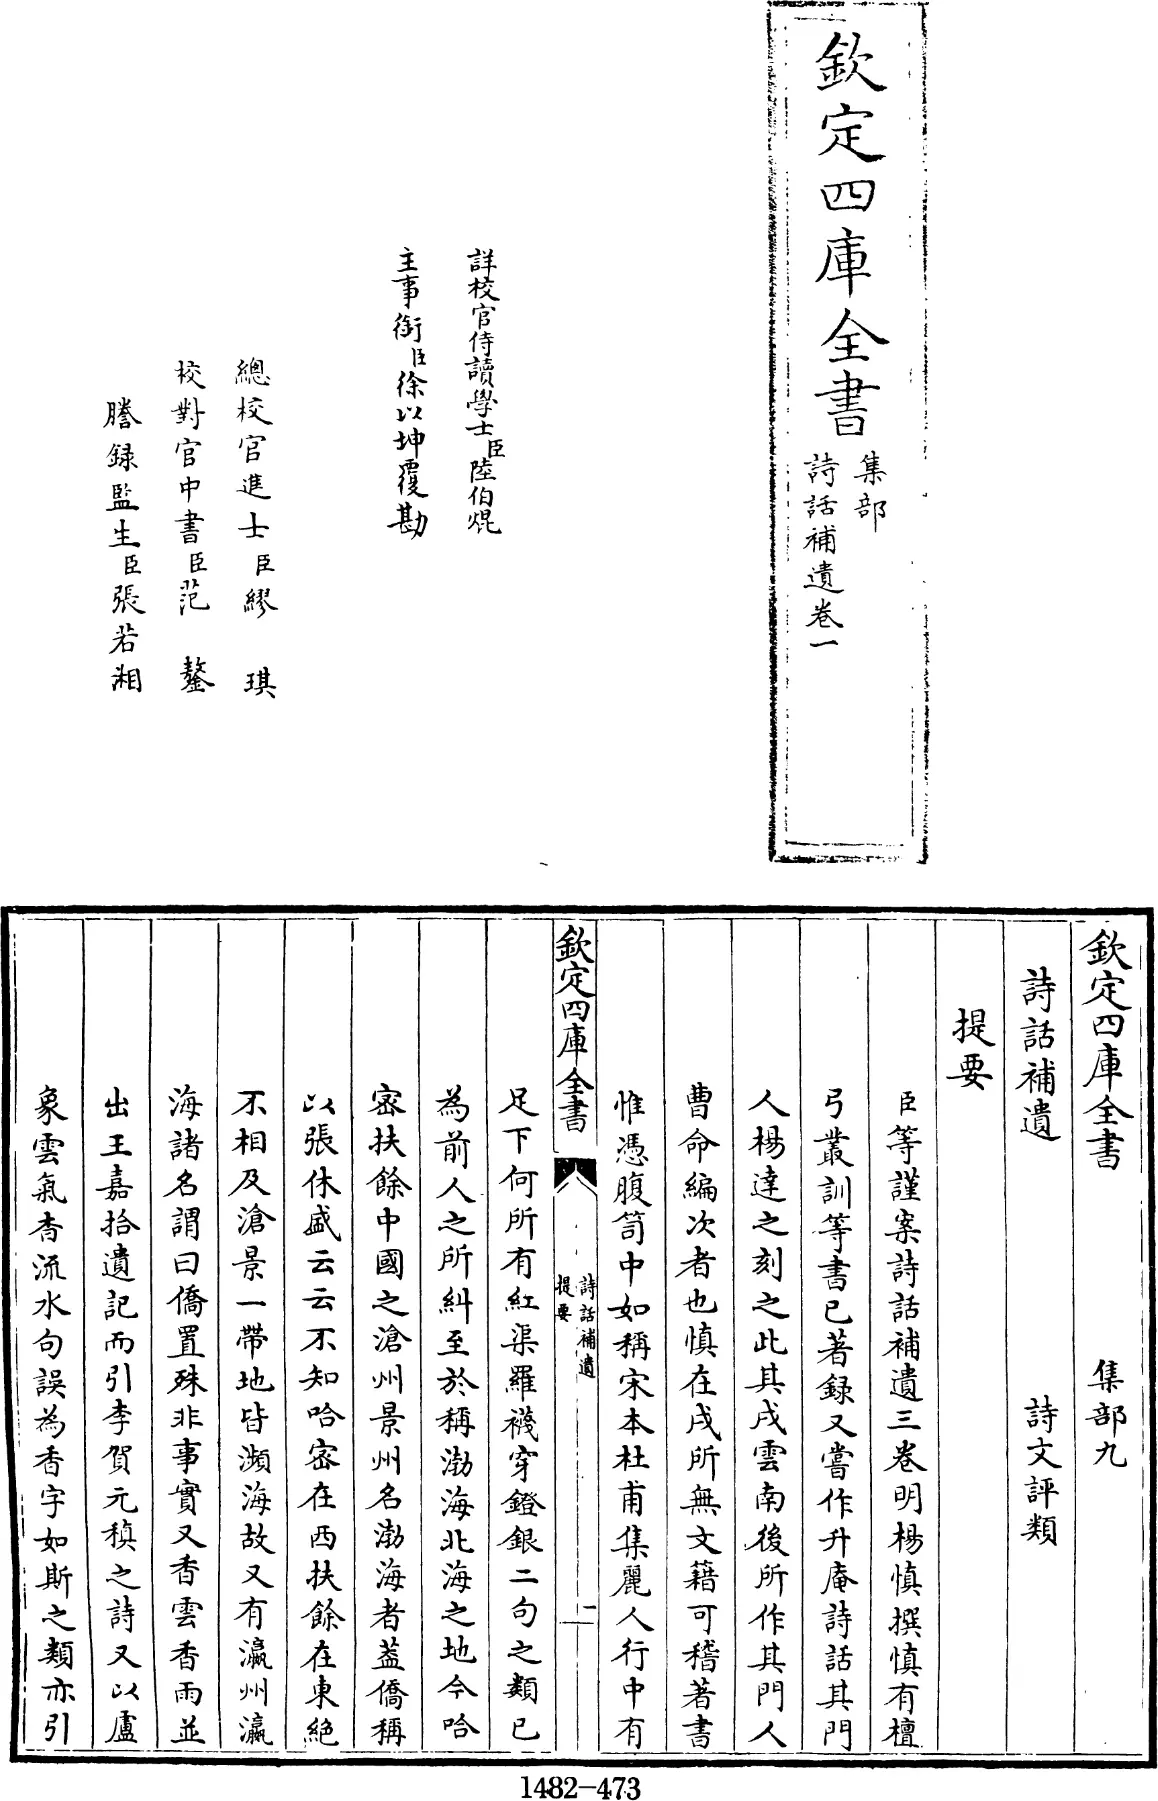 欽定四庫全書
集部
詩話補遺卷一
詳校官侍讀學士臣陸伯焜
主事銜臣徐以坤覆勘
總校官進士臣繆琪
校對官中書臣范鏊
謄錄監生臣張若湘
欽定四庫全書 集部九
詩話補遺 詩文評類
提要
臣等謹案詩話補遺三卷明楊慎撰慎有檀
弓叢訓等書已著録又嘗作升庵詩話其門
人楊達之刻之此其戍雲南後所作其門人
曹命編次者也慎在戍所無文籍可稽著書
惟憑腹笥中如稱宋本杜甫集麗人行中有
欽定四庫全書
詩話補遺
提要
一
足下何所有紅渠羅襪穿鐙銀二句之類已
為前人之所糾至於稱渤海北海之地今哈
密扶餘中國之滄州景州名渤海者蓋僑稱
以張休盛云云不知哈密在西扶餘在東絶
不相及滄景一帶地皆瀕海故又有瀛州瀛
海諸名謂曰僑置殊非事實又香雲香雨並
出王嘉拾遺記而引李賀元稹之詩又以盧
象雲氣杳流水句誤為香字如斯之類亦引
1482-473